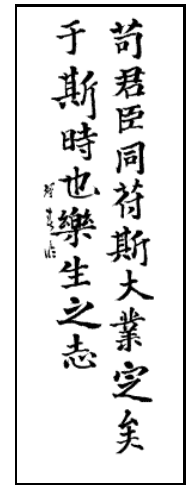 苟君臣同苻斯大業定矣
于斯時也樂生之志